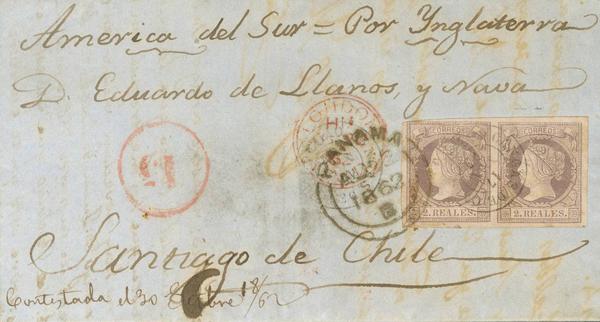 America del Sur = Por Ynglaterra
D. Eduardo de Llanos, y Nava
LONDON
PANAMA
1862
CORREOS
CORREOS
2. REALES.
2. REALES.
15
Santiago de Chile
Contestada el 30 18/62